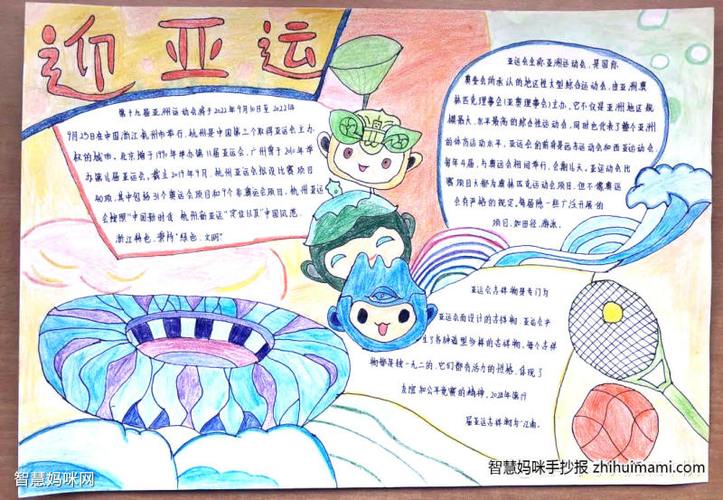 迎亚运
第十九届亚洲运动会将于2022年9月10日至2022年
9月25日在中国浙江杭州市举行,杭州是中国第三个取得亚运会主办
权的城市,北京曾于1990年举办第11届亚运会,广州曾于2010年举
办第16届亚运会。截至2019年9月,杭州亚运会拟设比赛项目
40项,其中包括31个奥运会项目和9个非奥运会项目。杭州亚运
会按照“中国新时代 杭州新亚运”定位以及“中国风范、
浙江特色、
“绿色、文明”
亚运会全称亚洲运动会,是国际
奥委会所承认的地区性大型综合运动会,由亚洲奥
林匹克理事会(亚奥理事会)主办,它不仅是亚洲地区规
模最大、水平最高的综合性运动会,同时也代表了整个亚洲
的体育运动水平,亚运会的前身是远东运动会和西亚运动会,
每年4届,与奥运会相间举行,会期
亚运会比
赛项目大都为奥林匹克运动会项目,但不像奥运
会有严格的规定,每届除一些广泛开展的
项目,如田径、游泳,
亚运会吉祥物是专门为
亚运会而设计的吉祥物,亚运会产
生了各种造型
的吉祥物,每个吉祥
物都是独一无二的,它们都有活力的性格,体现了
友谊和公平竞赛的精神,
届亚运吉祥物为“江南
智慧妈咪网
智慧妈咪手抄报 zhihuimami.com